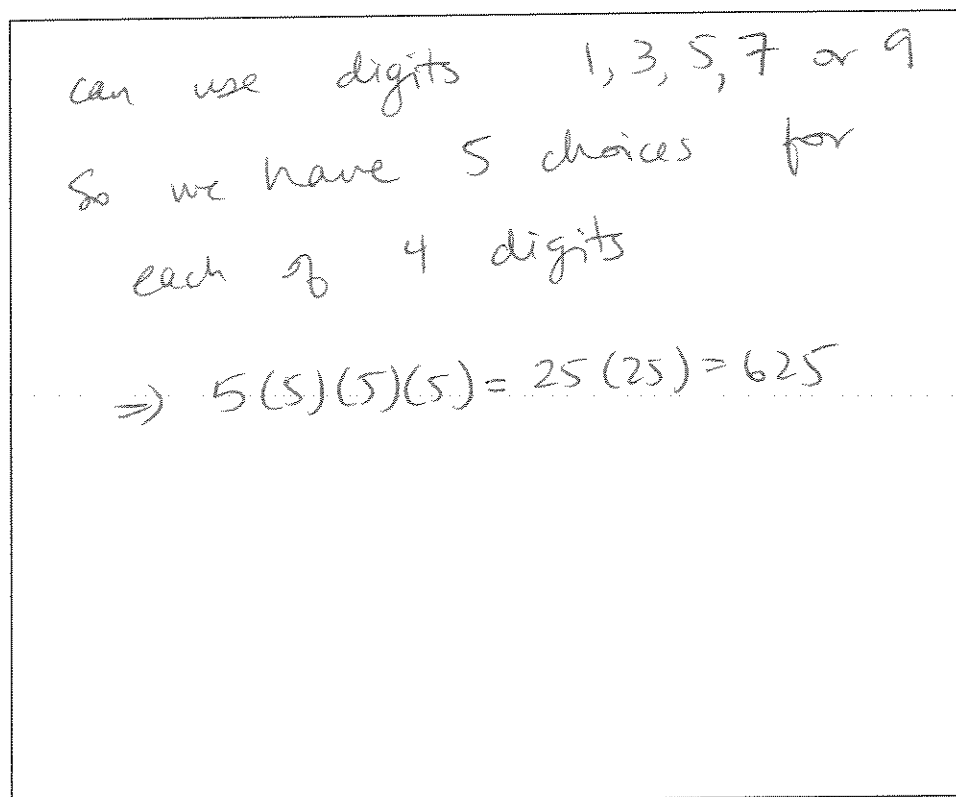 can use digits 1, 3, 5, 7 or 9
So we have 5 choices for
each of 4 digits
⇒ 5(5)(5)(5) = 25(25) = 625